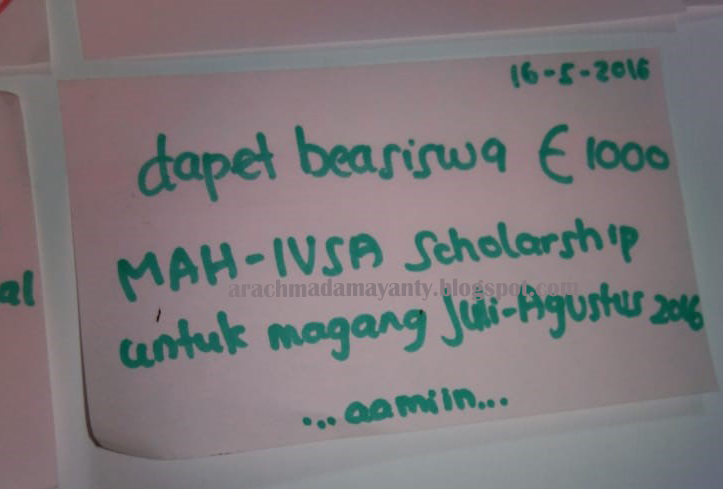 16-5-2016
dapet beasiswa € 1000
MAH-IVSA Scholarship
arachmadamayanty.blogspot.com
untuk magang Juli-Agustus 2016
...aamiin...
al